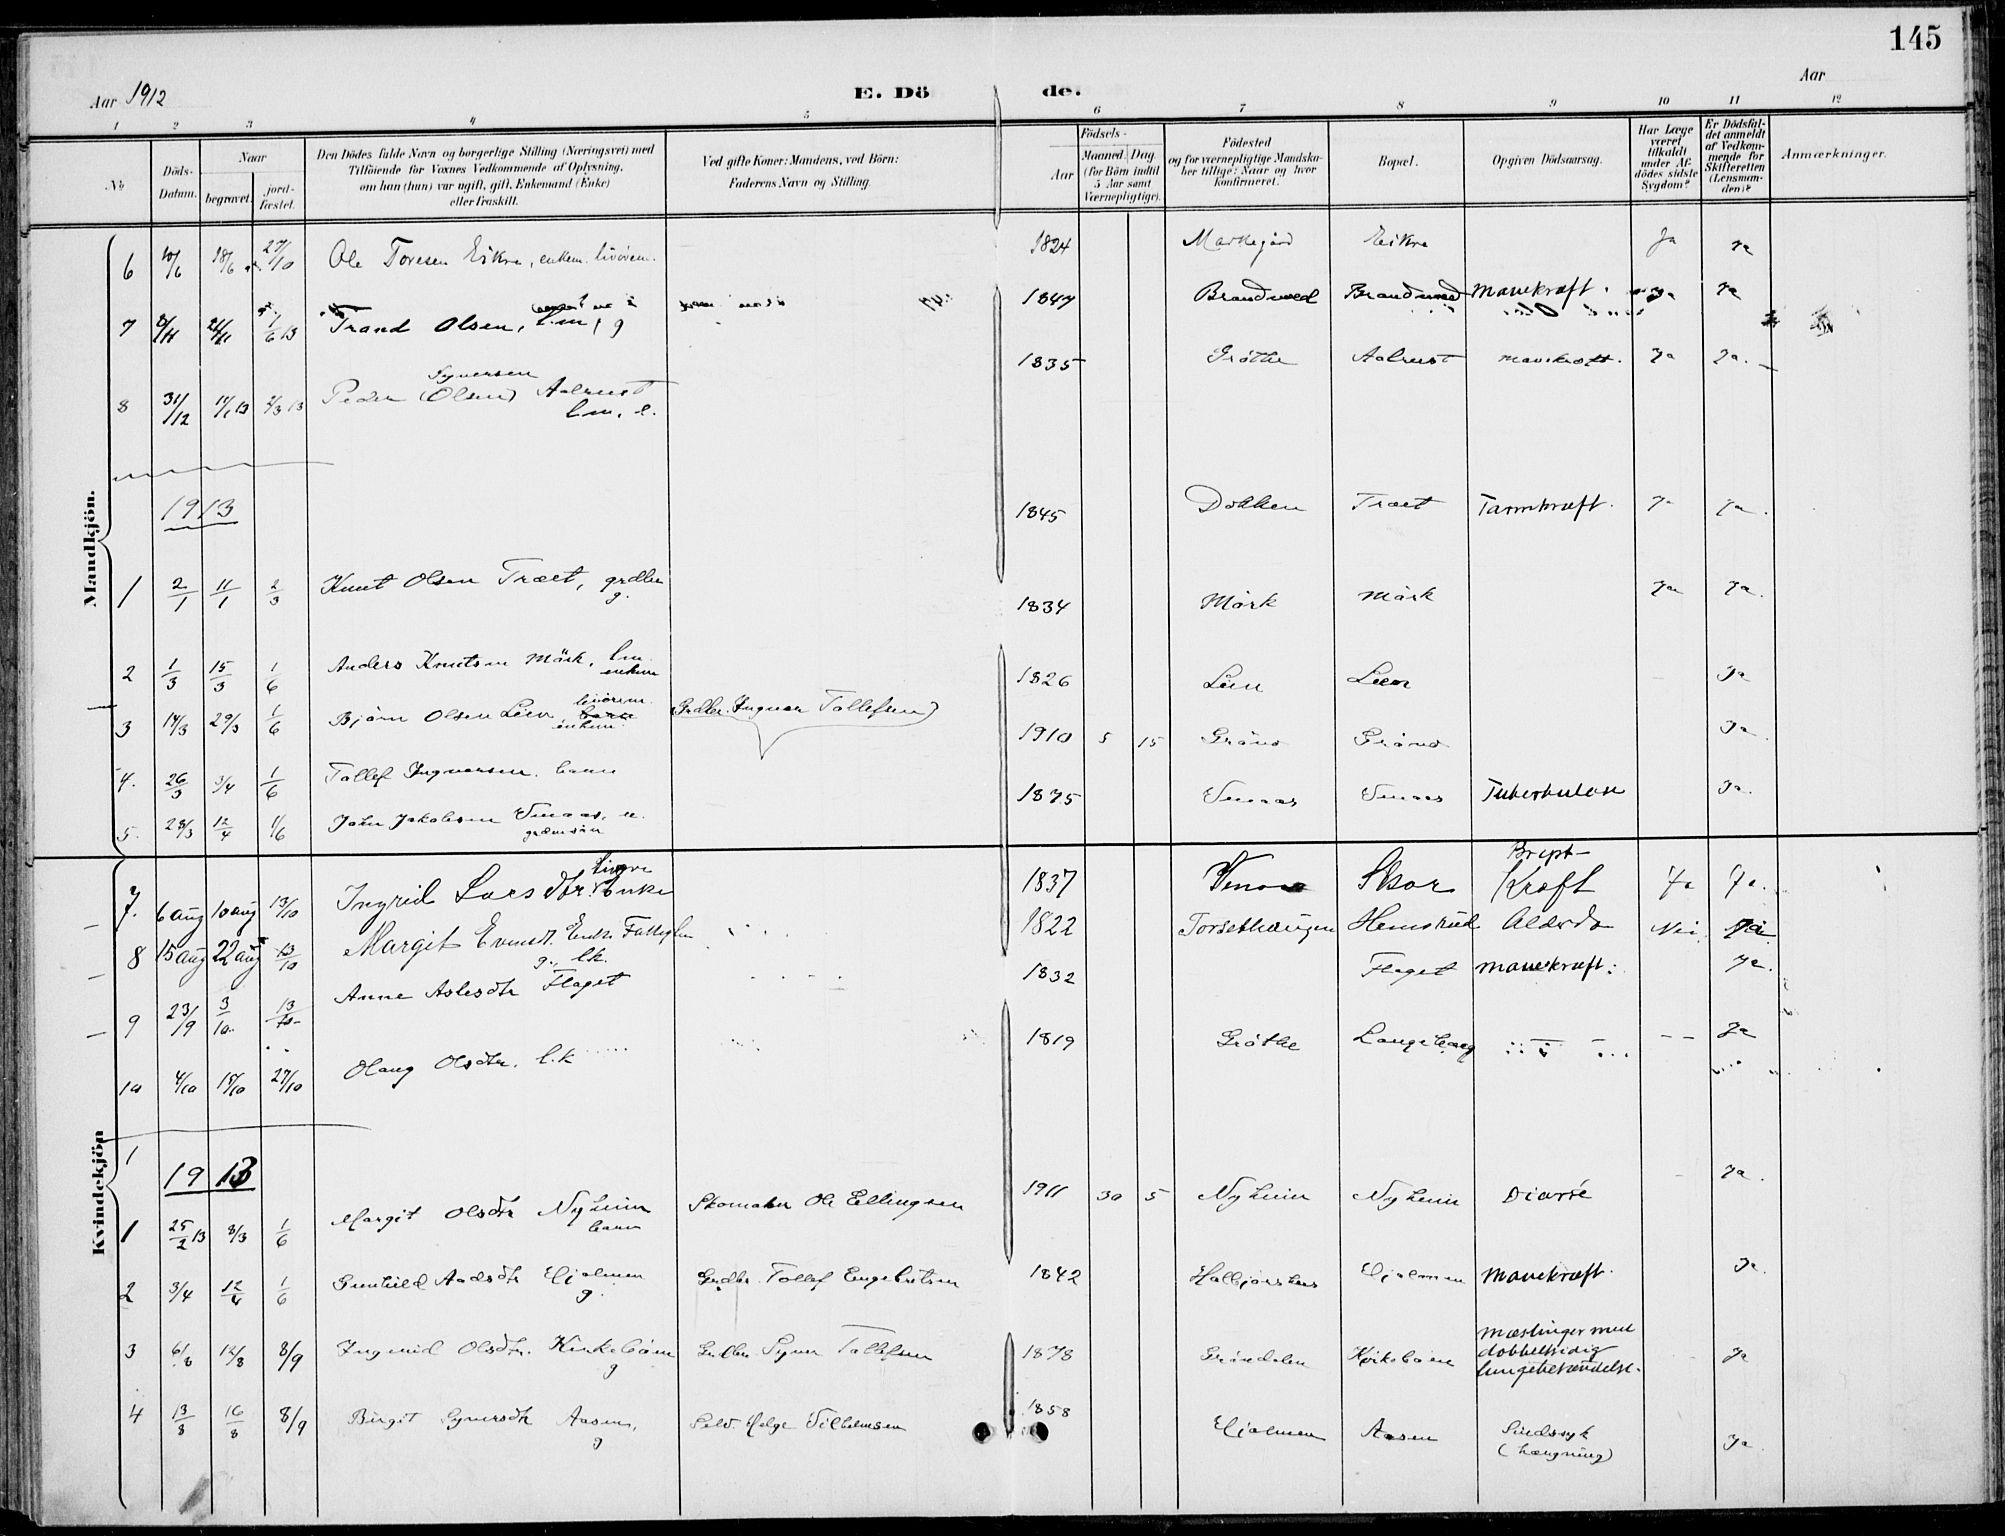 145
Aar 1912
E. Dö de.
Aar
1 2 3 4 5 6 7 8 9 10 11 12
No
Döds-Datum.
Naar
begravet.
jord-fæstet.
Den Dödes fulde Navn og borgerlige Stilling (Næringsvei) med
Tilföiende for Voxnes Vedkommende af Oplysning,
om han (hun) var ugift, gift, Enkemand (Enke)
eller fraskilt.
Ved gifte Koner: Mandens, ved Börn:
Faderens Navn og Stilling.
Födsels-
Aar
Maaned. Dag.
(for Börn indtil
5 Aar samt
Værnepligtige).
Födested
og for værnepligtige Mandska-
ber tillige: Naar og hvor
konfirmeret.
Bopæl.
Opgiven Dödsaarsag.
Har Læge
været
tilkaldt
under Af-
dödes sidste
Sygdom?
Er Dödsfal-
det anmeldt
af Vedkom-
mende for
Skifteretten
(Lensman-
den)?
Anmærkninger.
Mandkjön.
6 10/6 18/6 27/10 Ole Toresen Eikre, enkem. livörem. 1824 Markegård Eikre Ja ja
7 8/11 21/11 1/6 13 Trand Olsen, l.m, g 1847 Brandvoed Brandvoed Mavekræft. ja ja
8 31/12 14/1 13 2/3 13 Peder (Olsen) Syversen Aalrust l.m. e. 1835 Gröthe Aalrust mavekræft. ja ja.
1913
1 2/1 11/1 2/3 Knut Olsen Træet, grdbr g. 1845 Dokken Træet Tarmkræft. ja ja.
2 1/3 15/3 1/6 Anders Knutsen Mörk, l.m. enkem 1834 Mörk Mörk ja ja.
3 14/3 29/3 1/6 Björn Olsen Leen, livörem. enkem. 1826 Leen Leen ja
4. 26/3 3/4 1/6 Tollef Ingvarsen. barn (Grdbr. Ingvar Tollefsen) 1910 5 15 Grönd Grönd ja.
5. 28/3 12/4 1/6 John Jakobsen Venaas, u. grdmsön 1875 Venaas Venaas Tuberkulose ja.
Kvindekjön
7. 6 aug 10 aug 13/10 Ingrid Larsdtr. enke 1837 Skor Bryst-Kræft Ja Ja.
8 15 aug 22 aug 13/10 Margit Evensdt. Enke Fattiglem 1822 Torsethaugen Hemsrud Alderdo Nei Ja
9 23/9 3/10 13/10 Anne Aslesdtr Flaget g., l.k. 1832 Flaget Mavekræft. ja.
10 4/10 15/10 27/10 Olaug Olsdtr. l.k 1819 Gröthe Langehaug ja
1
1913
1 25/2 13 8/3 1/6 Margit Olsdtr Nyheim barn Skomaker Ole Ellingsen 1911 30 5 Nyheim Nyheim Diarré ja.
2 3/4 12/4 1/6 Gunhild Aadsdtr Hjelmen g. Grdbr. Tollef Engebretsen 1842 Halbjörhus Hjelmen Mavekræft. ja.
3 6/8 12/8 8/9 Ingerid Olsdtr. Kirkeböen g Grdbr. Syver Tollefsen 1878 Gröndalen Kirkeböen Mæslinger med dobbeltsidig lungebetændelse. ja
4 13/8 16/8 8/9 Birgit Syversdtr Aasen, g Selv. Helge Vilhelmsen 1858 Hjelmen Aasen Sindssyk (hængning) ja.